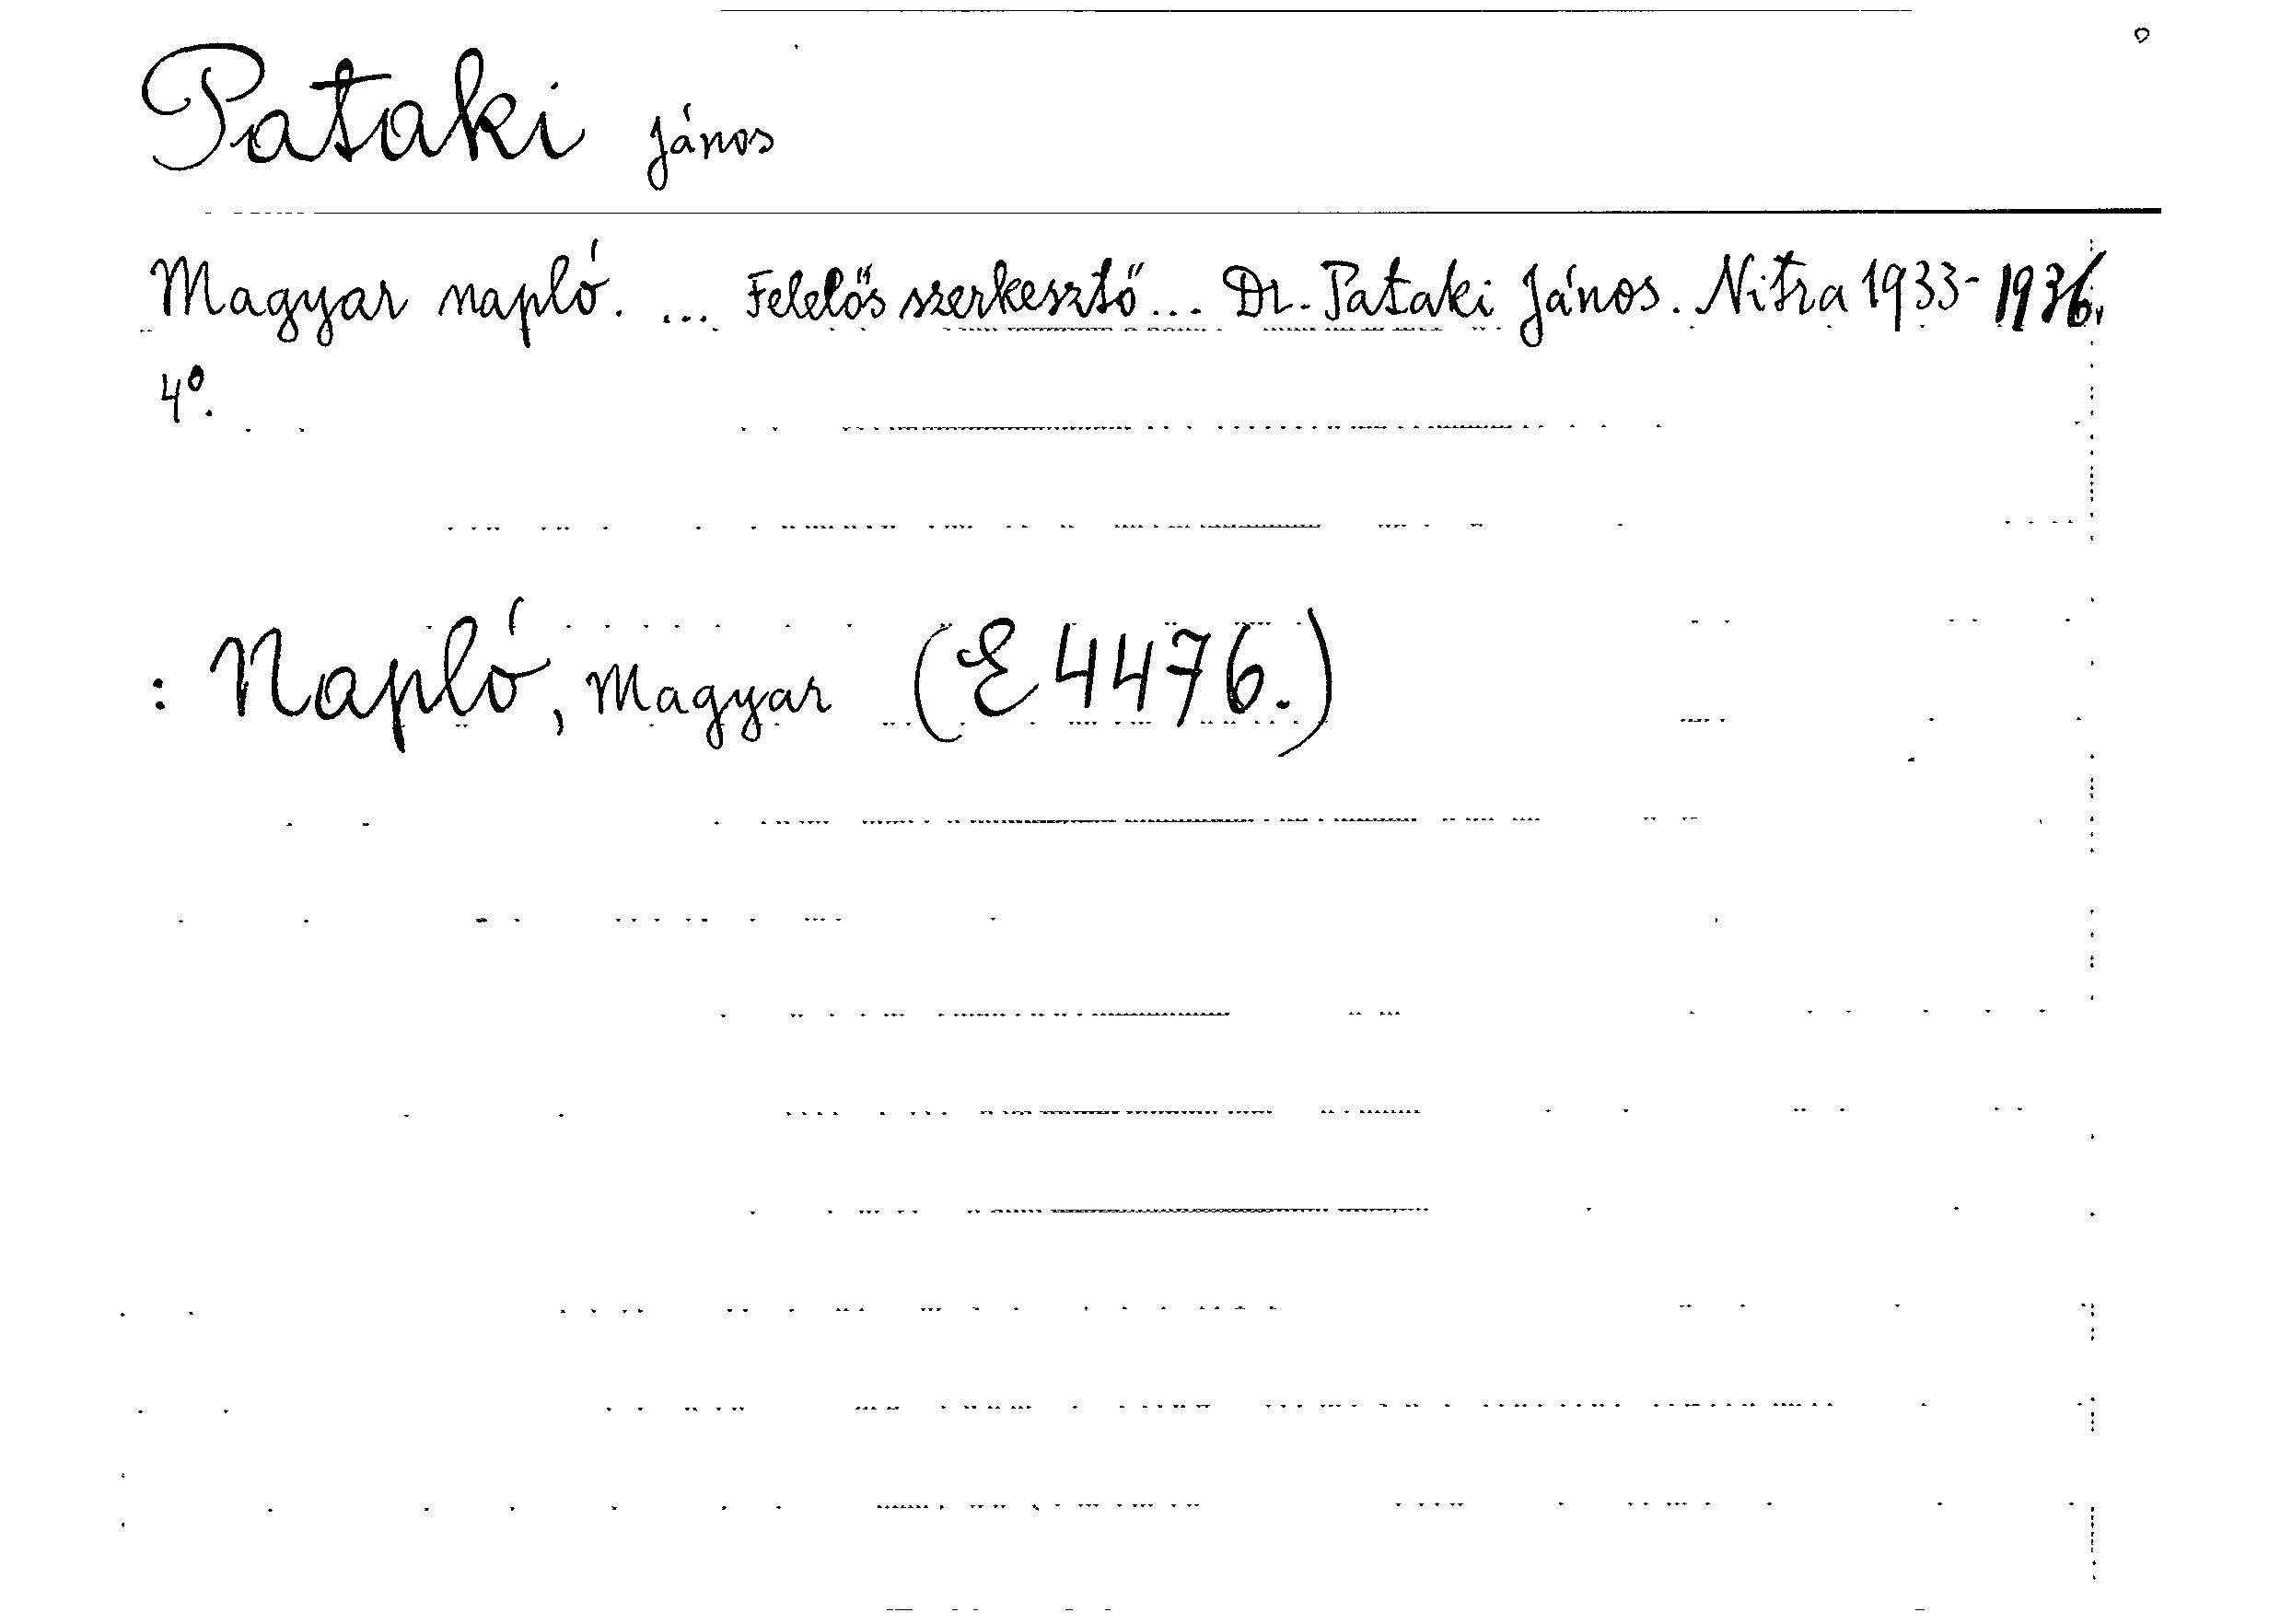 Pataki János
Magyar napló. ... Felelős szerkesztő... Dr. Pataki János. Nitra 1933-1936.
4º.
: Napló, Magyar (E 4476.)